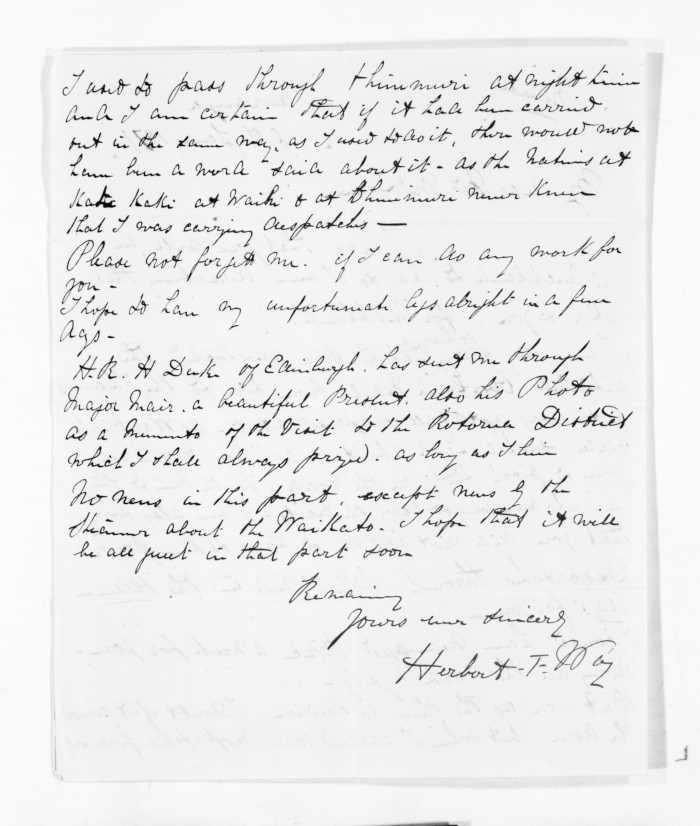 I used to pass through Ohinemuri at night time
and I am certain that if it had been carried
out in the same way, as I used to do it, there would not
have been a word said about it - as the Natives at
Kati Kati at Waihi & at Ohinemuri never knew
that I was carrying despatches —
Please not forget me. if I can do any work for
you -
I hope to have my unfortunate legs alright in a few
days -
H.R.H Duke of Edinburgh. has sent me through
Major Mair. a beautiful Present. also his Photo
as a Memento of the Visit to the Rotorua District
which I shall always prized. as long as I live
No news in this part, except news by the
Steamer about the Waikato. I hope that it will
be all quiet in that part soon
Remaining
Yours ever sincerely
Herbert - T - Way